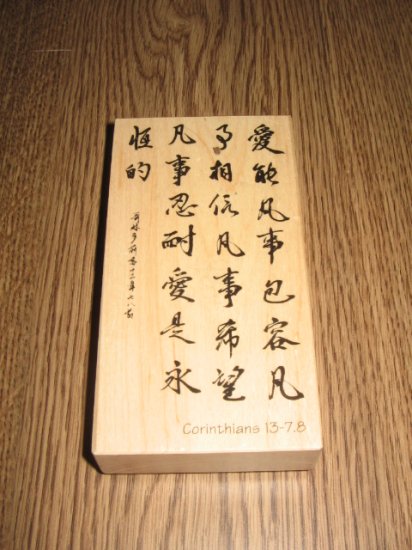 愛能凡事包容凡
事相信凡事希望
凡事忍耐愛是永
恆的
哥林多前書十三章七八節
Corinthians 13-7.8